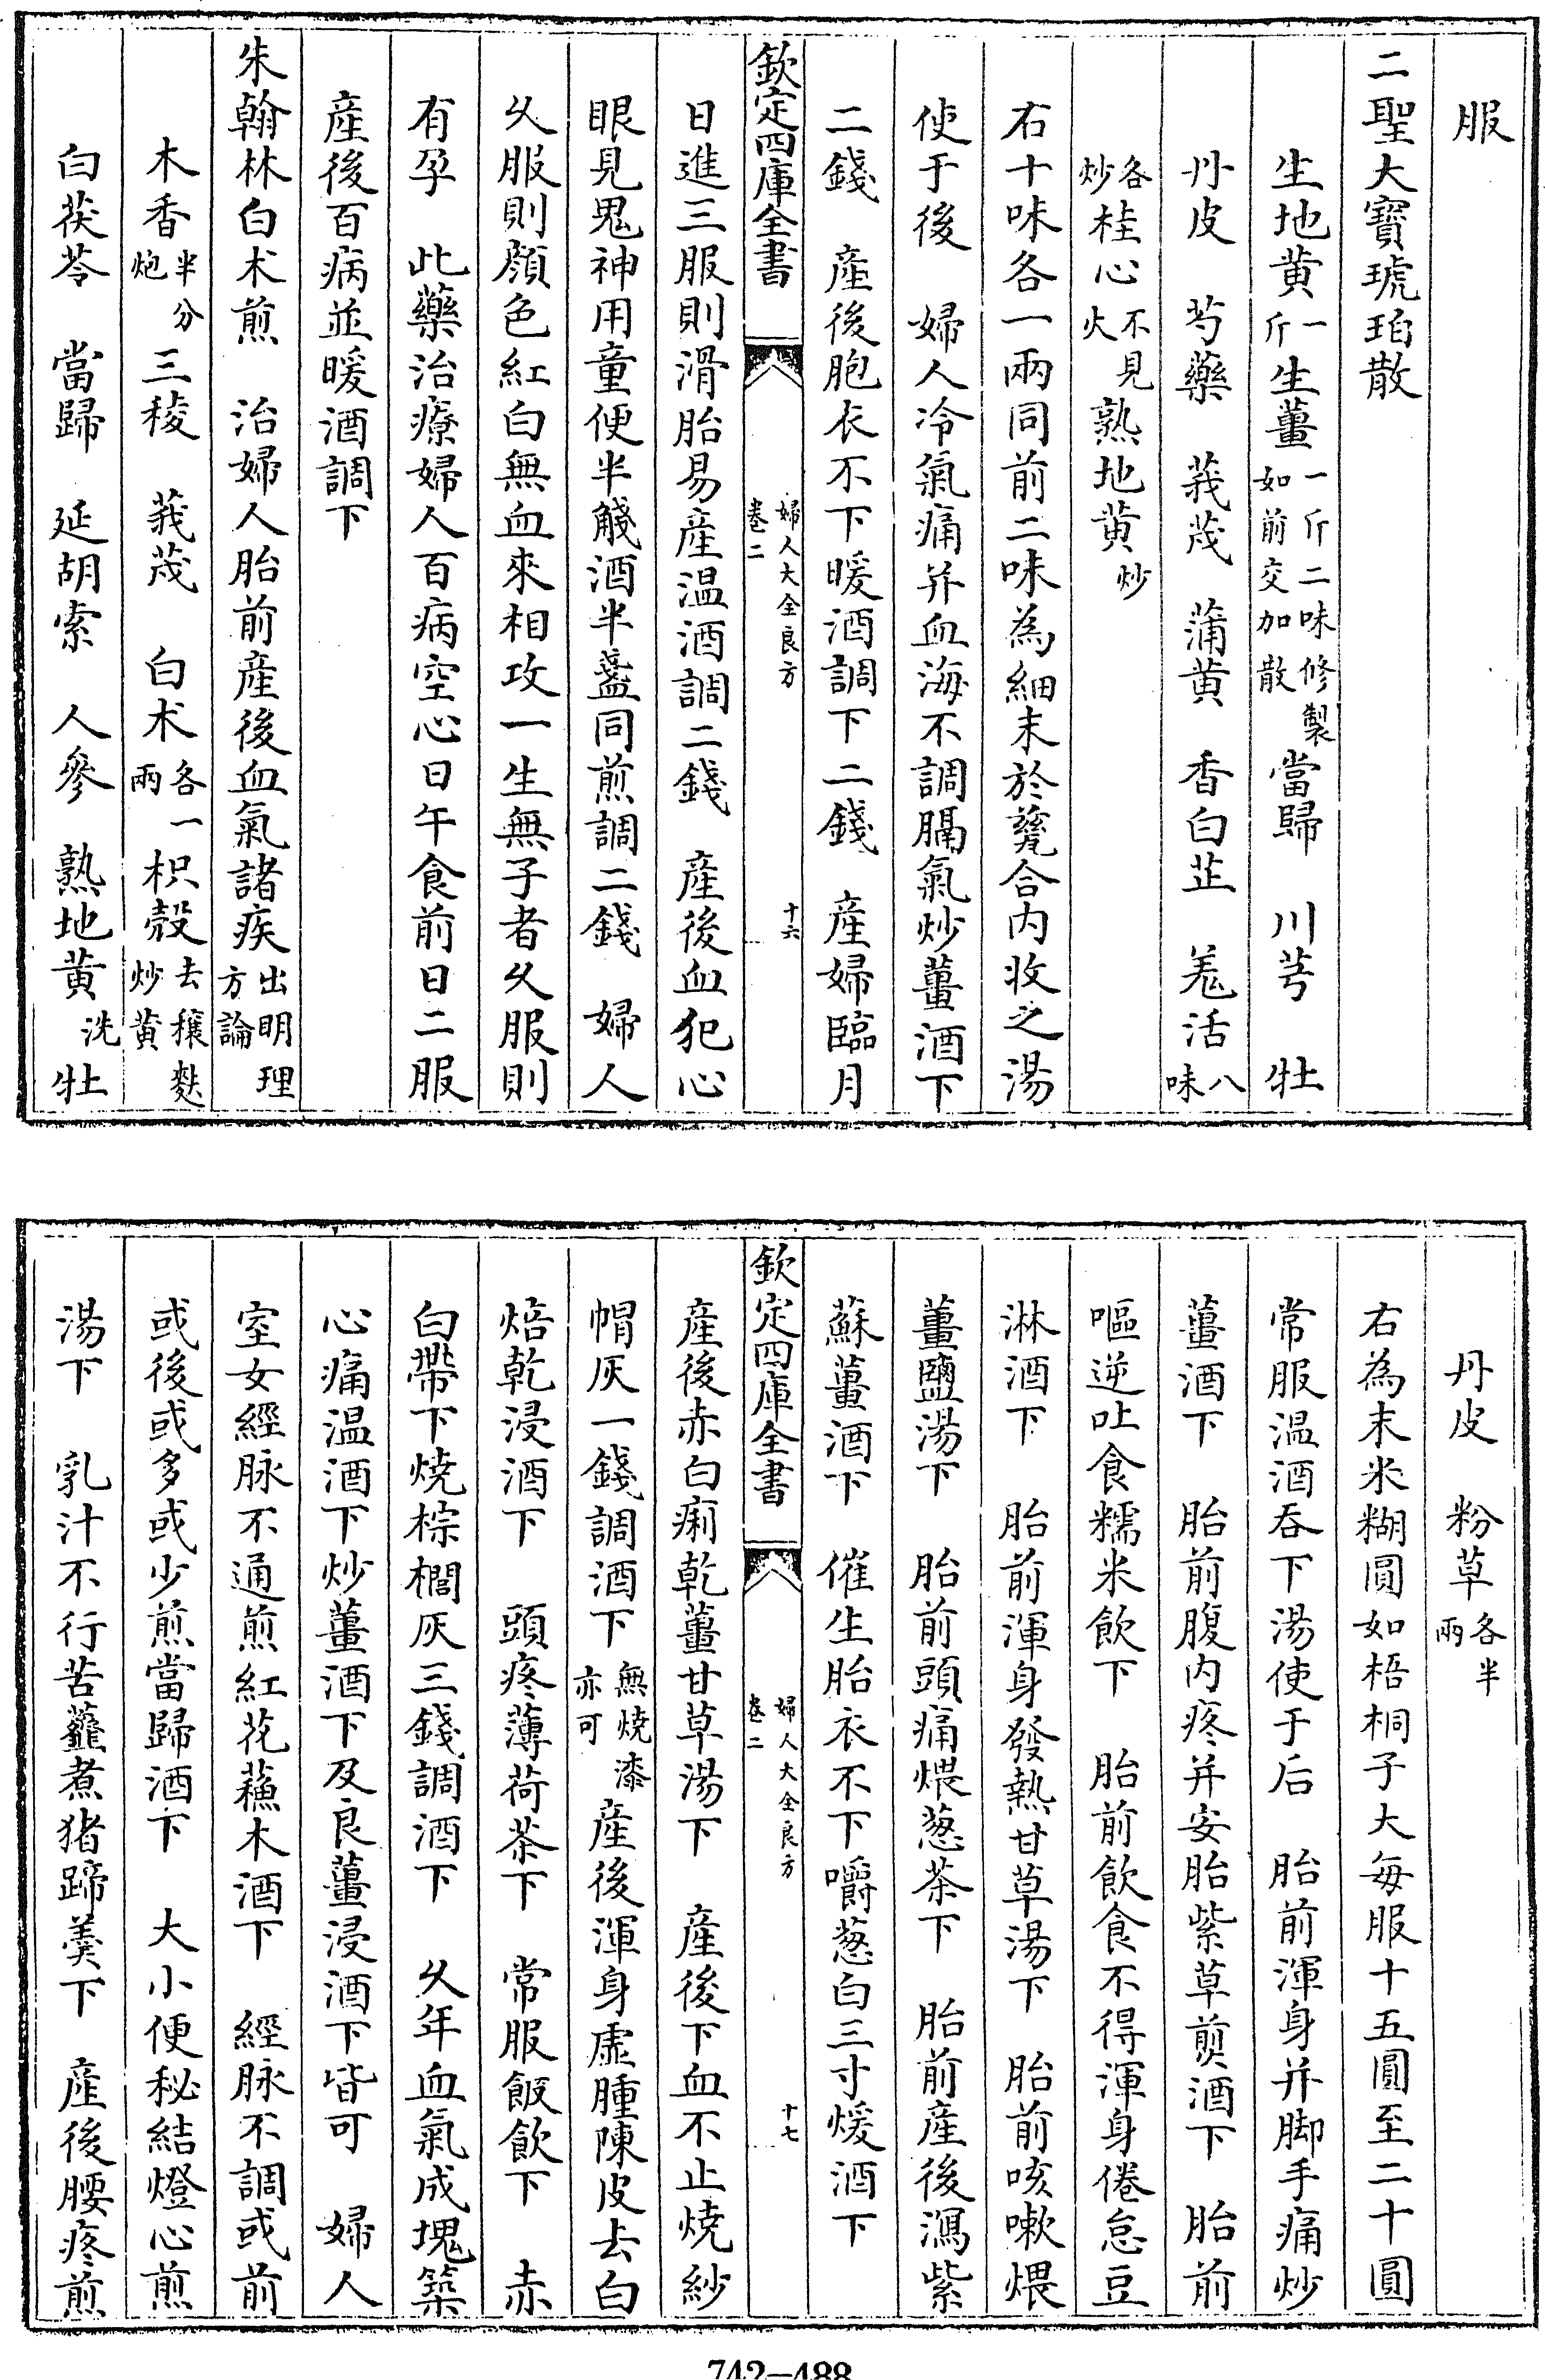 服
二聖大寶琥珀散
生地黄一斤生薑一斤二味修製如前交加散當歸 川芎 牡
丹皮 芍藥 莪茂 蒲黄 香白芷 羗活八味
各炒桂心不見火熟地黄炒
右十味各一兩同前二味為細末於甆合内收之湯
使于後 婦人冷氣痛并血海不調膈氣炒薑酒下
二錢 産後胞衣不下暖酒調下二錢 産婦臨月
欽定四庫全書 婦人大全良方 卷二 十六
日進三服則滑胎易産温酒調二錢 産後血犯心
眼見鬼神用童便半觥酒半盞同煎調二錢 婦人
久服則顔色紅白無血來相攻一生無子者久服則
有孕 此藥治療婦人百病空心日午食前日二服
産後百病並暖酒調下
朱翰林白术煎 治婦人胎前産後血氣諸疾出明理方論
木香半分炮三稜 莪茂 白术各一兩枳殼去穰麩炒黄
白茯苓 當歸 延胡索 人參 熟地黄洗牡
丹皮 粉草各半兩
右為末米糊圓如梧桐子大毎服十五圓至二十圓
常服温酒吞下湯使于后 胎前渾身并脚手痛炒
薑酒下 胎前腹内疼并安胎紫草煎酒下 胎前
嘔逆吐食糯米飲下 胎前飲食不得渾身倦怠豆
淋酒下 胎前渾身發熱甘草湯下 胎前咳嗽煨
薑鹽湯下 胎前頭痛煨葱茶下 胎前産後瀉紫
蘇薑酒下 催生胎衣不下嚼葱白三寸煖酒下
欽定四庫全書 婦人大全良方 卷二 十七
産後赤白痢乾薑甘草湯下 産後下血不止燒紗
帽灰一錢調酒下無燒漆亦可産後渾身虚腫陳皮去白
焙乾浸酒下 頭疼薄荷茶下 常服飯飲下 赤
白帶下燒棕櫚灰三錢調酒下 久年血氣成塊築
心痛温酒下炒薑酒下及良薑浸酒下皆可 婦人
室女經脉不通煎紅花蘓木酒下 經脉不調或前
或後或多或少煎當歸酒下 大小便秘結燈心煎
湯下 乳汁不行苦虀煮猪蹄羮下 産後腰疼煎
742—488